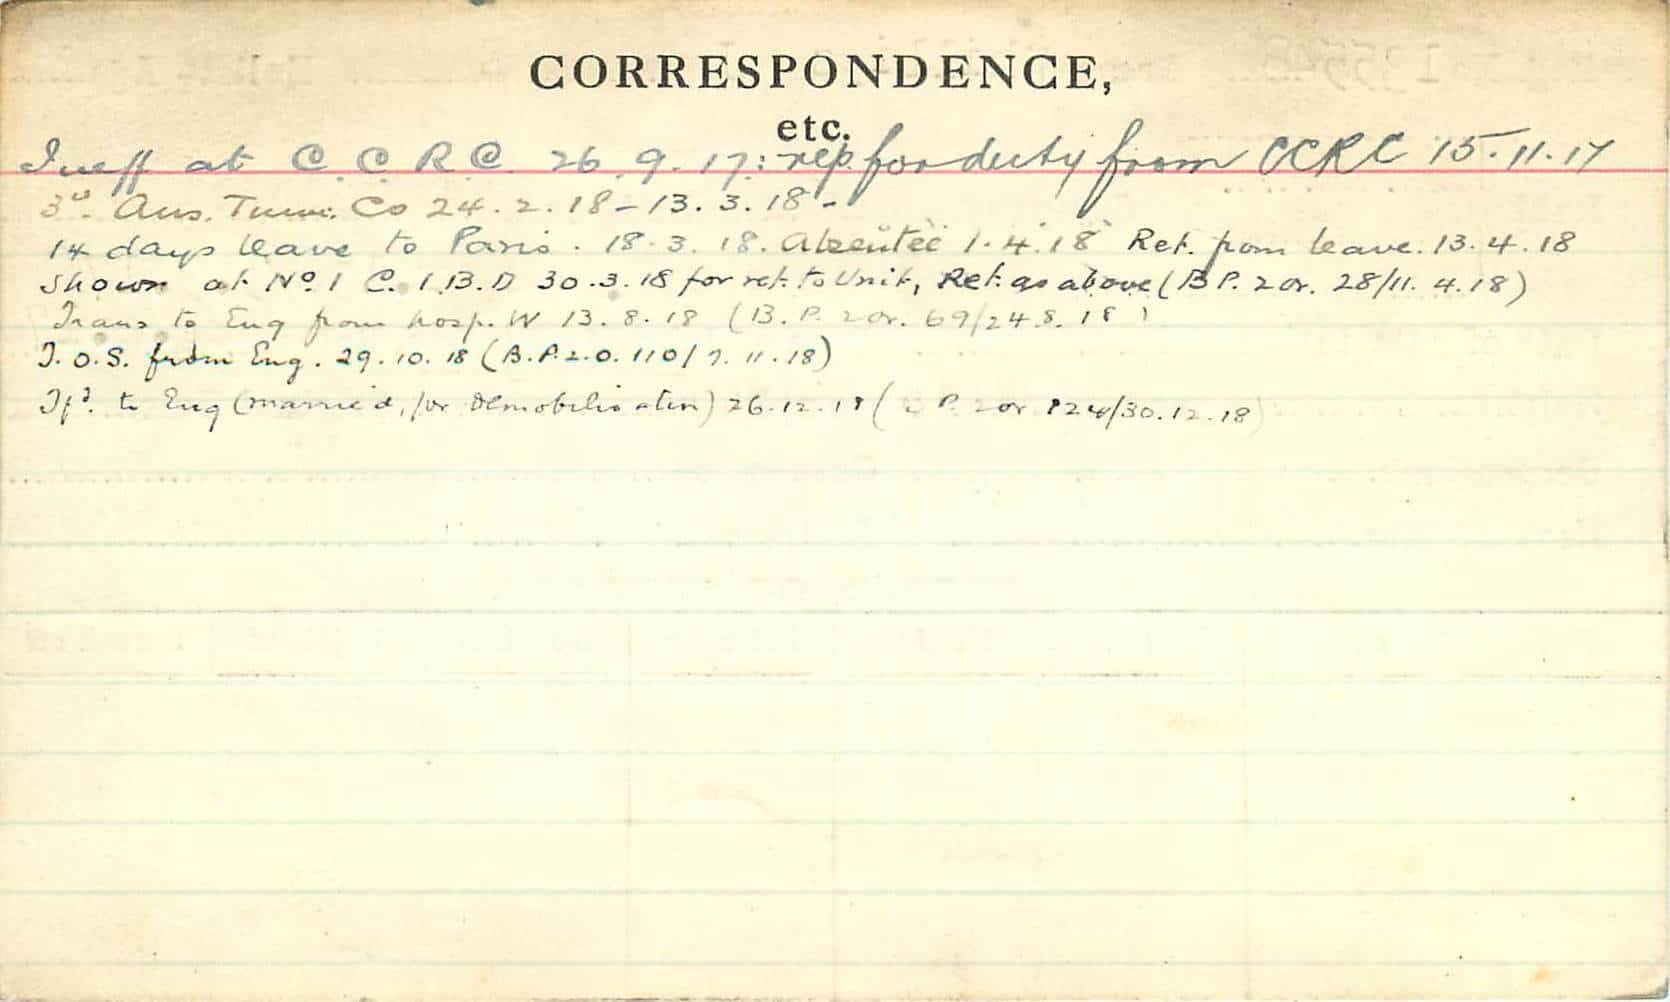 CORRESPONDENCE,
etc.
Ineff at C.C.R.C. 26.9.17: rep. for duty from CCRC 15.11.17
3rd. Aus. Tunn. Co 24.2.18 - 13.3.18 -
14 days leave to Paris. 18.3.18. Absentee 1.4.18 Ret. from leave. 13.4.18
Shown at No. 1 C.I.B.D 30.3.18 for ret. to Unit, Ret. as above (B P. 2 or. 28/11.4.18)
Trans to Eng from hosp. W 13.8.18 (B.P. 2 or. 69/24.8.18)
T.O.S. from Eng. 29.10.18 (B.P.2.O. 110/7.11.18)
Tfd. to Eng (married, for Demobilisation) 26.12.18 ( P. 2 or 124/30.12.18)